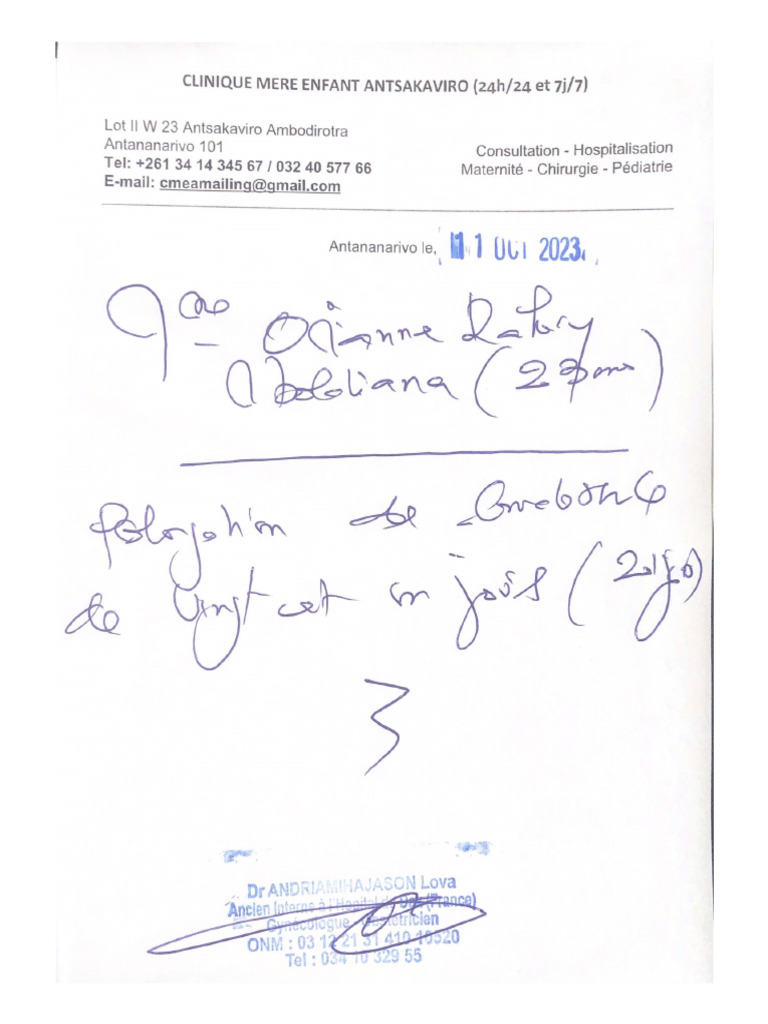 CLINIQUE MERE ENFANT ANTSAKAVIRO (24h/24 et 7j/7)
Lot II W 23 Antsakaviro Ambodirotra
Antananarivo 101
Tel: +261 34 14 345 67 / 032 40 577 66
E-mail: cmeamailing@gmail.com
Consultation - Hospitalisation
Maternité - Chirurgie - Pédiatrie
Antananarivo le, 11 OCT 2023
Orianne
(23 ans)
de
de vingt et un jours (21 jrs)
Dr ANDRIAMIHAJASON Lova
Ancien Interne à l'Hopital de (France)
Gynécologue Obstétricien
ONM :
Tel : 034 10 329 55